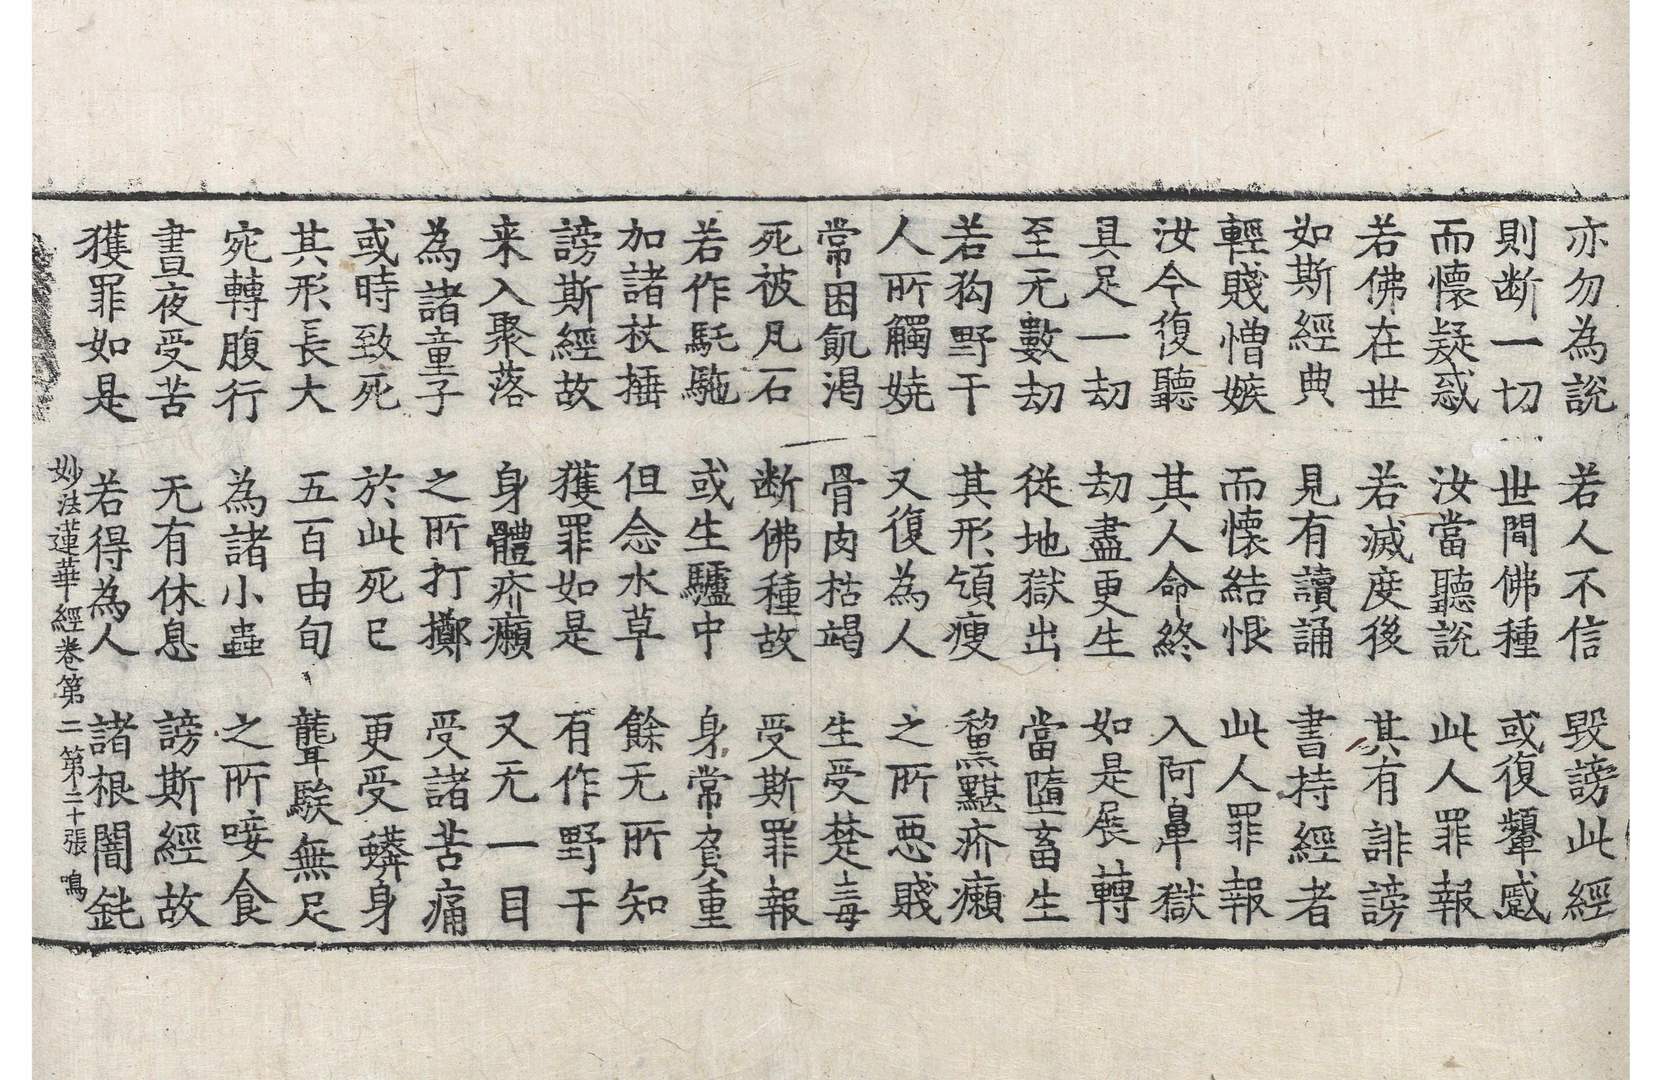 亦勿為說　若人不信　毀謗此經
則断一切　世間佛種　或復顰蹙
而懷疑惑　汝當聽說　此人罪報
若佛在世　若滅度後　其有誹謗
如斯經典　見有讀誦　書持經者
輕賤憎嫉　而懷結恨　此人罪報
汝今復聽　其人命終　入阿鼻獄
具足一劫　劫盡更生　如是展轉
至无數劫　從地獄出　當墮畜生
若狗野干　其形頜瘦　黧黮疥癩
人所觸嬈　又復為人　之所惡賤
常困飢渴　骨肉枯竭　生受楚毒
死被凡石　断佛種故　受斯罪報
若作馲馳　或生驢中　身常負重
加諸杖捶　但念水草　餘无所知
謗斯經故　獲罪如是　有作野干
来入聚落　身體疥癩　又无一目
為諸童子　之所打擲　受諸苦痛
或時致死　於此死已　更受蟒身
其形長大　五百由旬　聾騃無足
宛轉腹行　為諸小蟲　之所唼食
晝夜受苦　无有休息　謗斯經故
獲罪如是　若得為人　諸根闇鈍
妙法蓮華經卷第二　第二十張　鳴